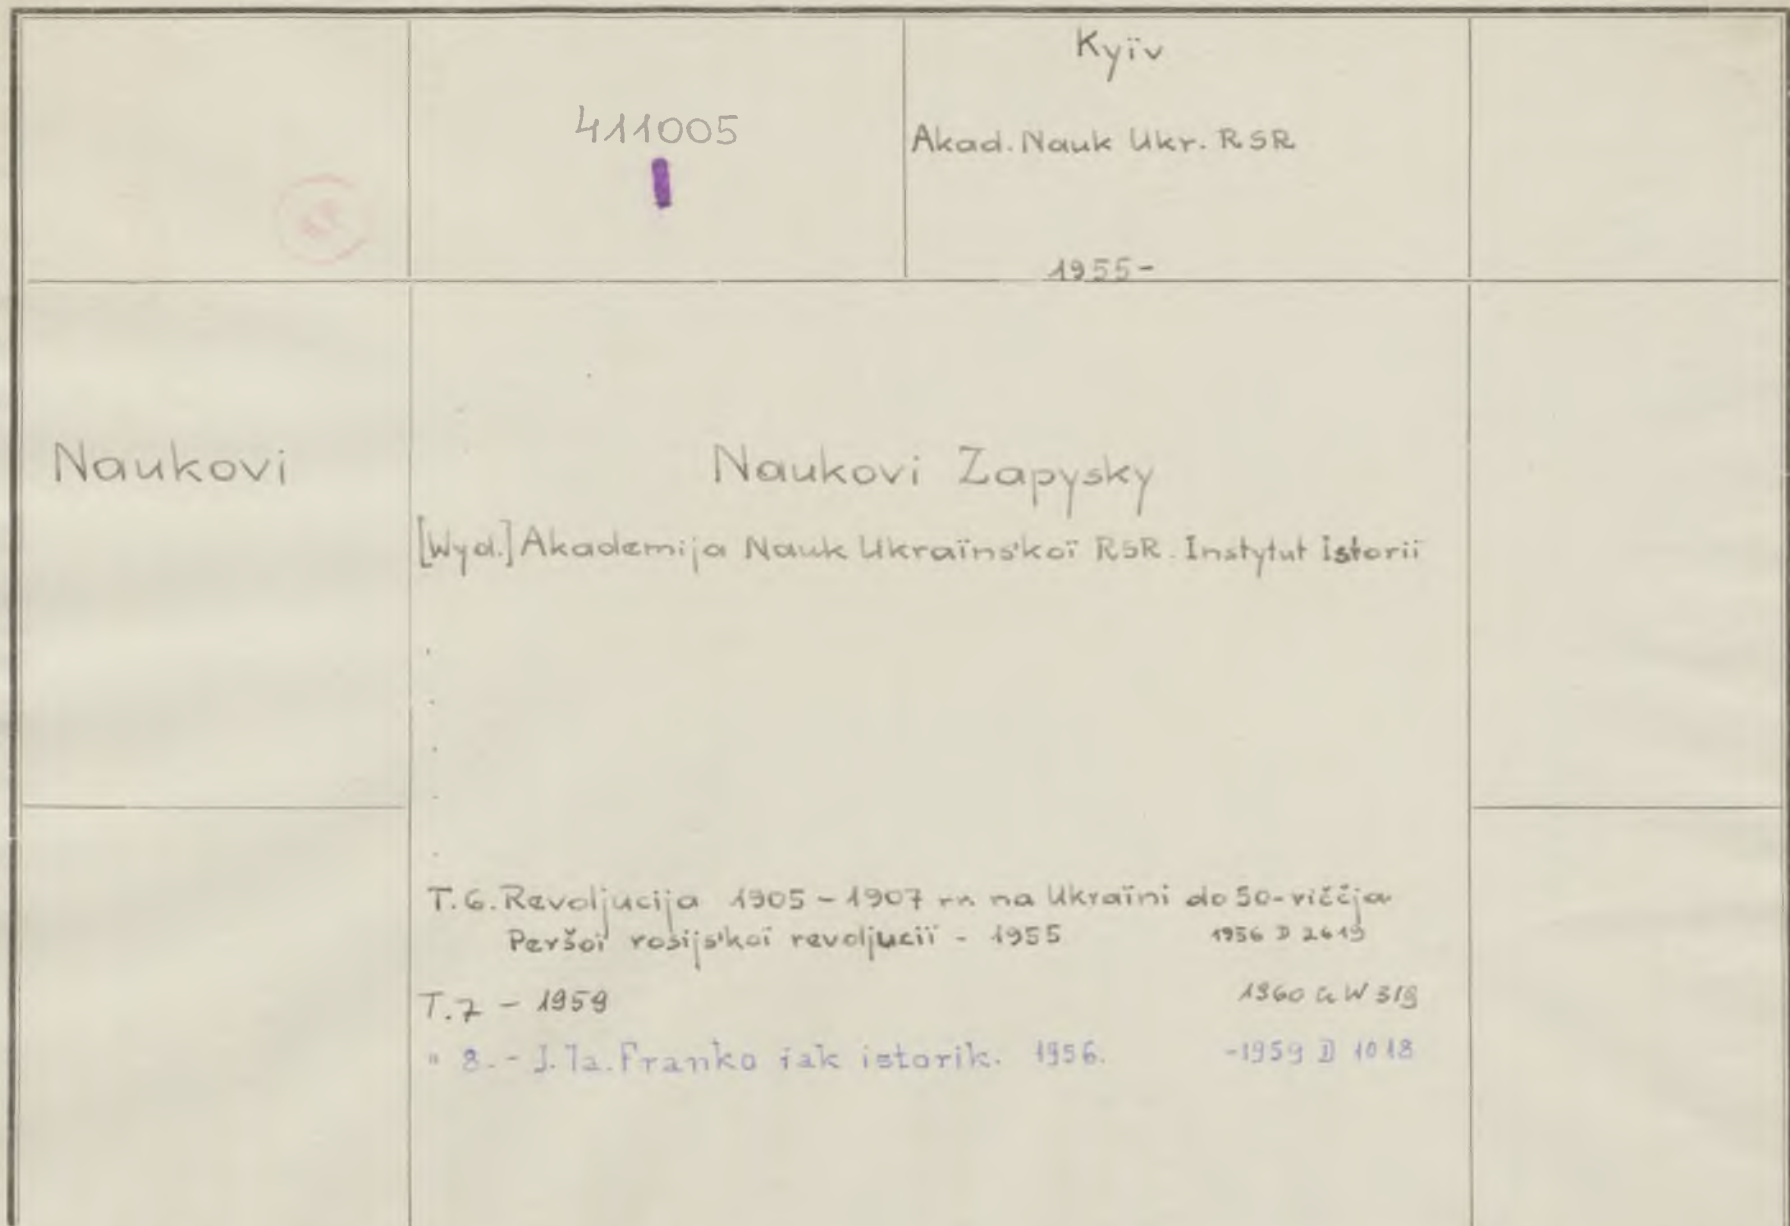 Kyïv
411005
Akad. Nauk Ukr. RSR
1955-
Naukovi
Naukovi Zapysky
[Wyd.] Akademija Nauk Ukraïns'koï RSR. Instytut Istoriï
T. 6. Revoljucija 1905-1907 rr. na Ukraïni do 50-riččja
Peršoï rosijs'koï revoljuciï - 1955 1956 D 2619
T. 7 - 1959 1960 W 319
" 8. - I. Ja. Franko iak istorik. 1956. -1959 D 1018